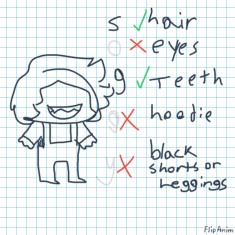 s ✓ hair
o ✗ eyes
g ✓ Teeth
g ✗ hoodie
y ✗ black
shorts or
leggings
FlipAnim